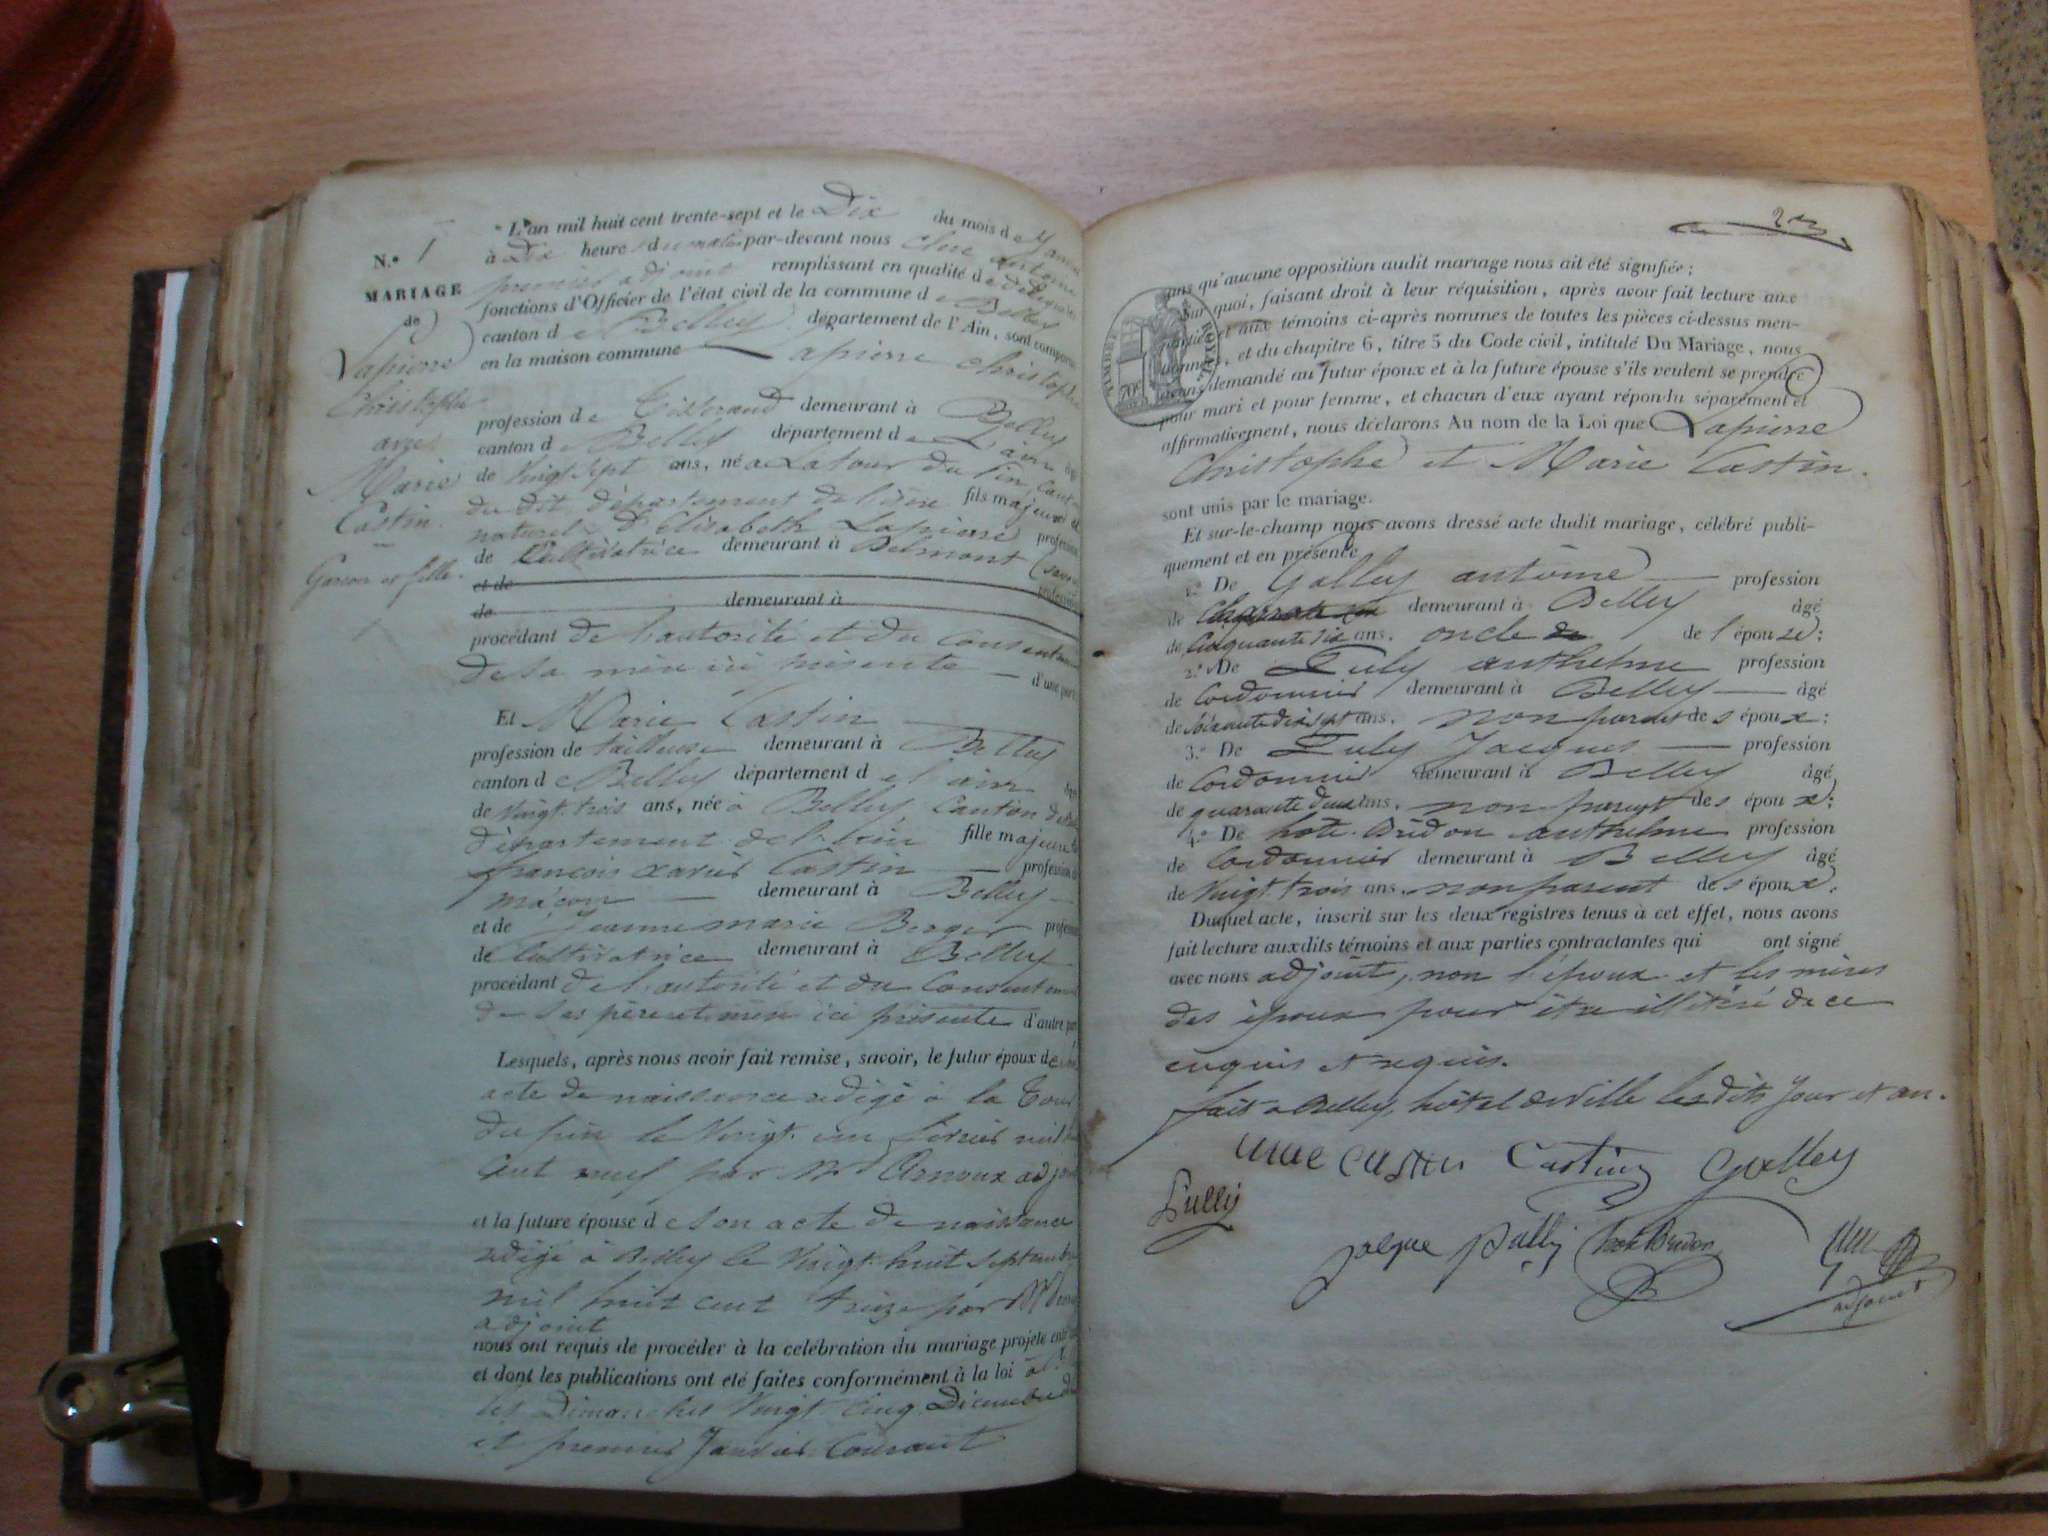 N.º 1
MARIAGE
de
Lapierre
Christophe
avec
Marie
Castin.
Garçon et fille.
L'an mil huit cent trente-sept et le Dix du mois de Janvier
à Dix heures du matin par-devant nous
premier adjoint remplissant en qualité de délégué les
fonctions d'Officier de l'état civil de la commune de Belley
canton de Belley département de l'Ain, sont comparus
en la maison commune Lapierre Christophe
profession de Tisserand demeurant à Belley
canton de Belley département de L'ain âgé
de Vingt Sept ans, né a Latour du Pin, canton
du dit, département de l'isère fils majeur et
naturel D'élisabeth Lapierre profession
de Cultivatrice demeurant à Belmont (Savoie
et de profession
de demeurant à
procédant de l'autorité et du Consentement
de sa mère ici présente d'une part
Et Marie Castin
profession de tailleuse demeurant à Belley
canton de Belley département de l'ain âgée
de Vingt trois ans, née à Belley, Canton de Belley
département de l'ain fille majeure de
françois xavier Castin profession de
maçon demeurant à Belley
et de Jeanne marie Berger profession
de Cultivatrice demeurant à Belley
procédant de l'autorité et du Consentement
de Ses père et mère ici présente d'autre part
Lesquels, après nous avoir fait remise, savoir, le futur époux de son
acte de naissance rédigé à la Tour
du pin le Vingt un février mil huit
Cent neuf par Mr Arnoux adjoint
et la future épouse de son acte de naissance
rédigé à Belley le Vingt huit Septembre
mil huit cent treize par Mr
adjoint
nous ont requis de procéder à la celébration du mariage projeté entr'eux
et dont les publications ont eté faites conformément à la loi
les Dimanches Vingt Cinq Décembre
et premier Janvier Courant
2
TIMBRE ROYAL
70c
sans qu'aucune opposition audit mariage nous ait été signifiée;
Sur quoi, faisant droit à leur réquisition, après avoir fait lecture aux
parties et aux témoins ci-après nommés de toutes les pièces ci-dessus men-
tionnées, et du chapitre 6, titre 5 du Code civil, intitulé Du Mariage, nous
avons demandé au futur époux et à la future épouse s'ils veulent se prendre
pour mari et pour femme, et chacun d'eux ayant répondu séparément et
affirmativement, nous déclarons Au nom de la Loi que Lapierre
Christophe et Marie Castin.
sont unis par le mariage.
Et sur-le-champ nous avons dressé acte dudit mariage, célébré publi-
quement et en présence
1.º De Galley antoine profession
de demeurant à Belley âgé
de Cinquante six ans, oncle de l'épouse;
2.º De Puly anthelme profession
de Cordonnier demeurant à Belley âgé
de Soixante dix sept ans, non parent des époux;
3.º De Puly Jacques profession
de Cordonnier demeurant à Belley âgé
de quarante deux ans, non parent des époux;
4.º De hote Bridon anthelme profession
de Cordonnier demeurant à Belley âgé
de Vingt trois ans, non parent des époux.
Duquel acte, inscrit sur les deux registres tenus à cet effet, nous avons
fait lecture auxdits témoins et aux parties contractantes qui ont signé
avec nous adjoint, non l'époux et les mères
des époux pour être illitéré de ce
enquis et requis.
fait à Belley, hôtel de Ville les dits Jour et an.
Marie Castin Castin Galley
Pully
Jacque Pully
adjoint